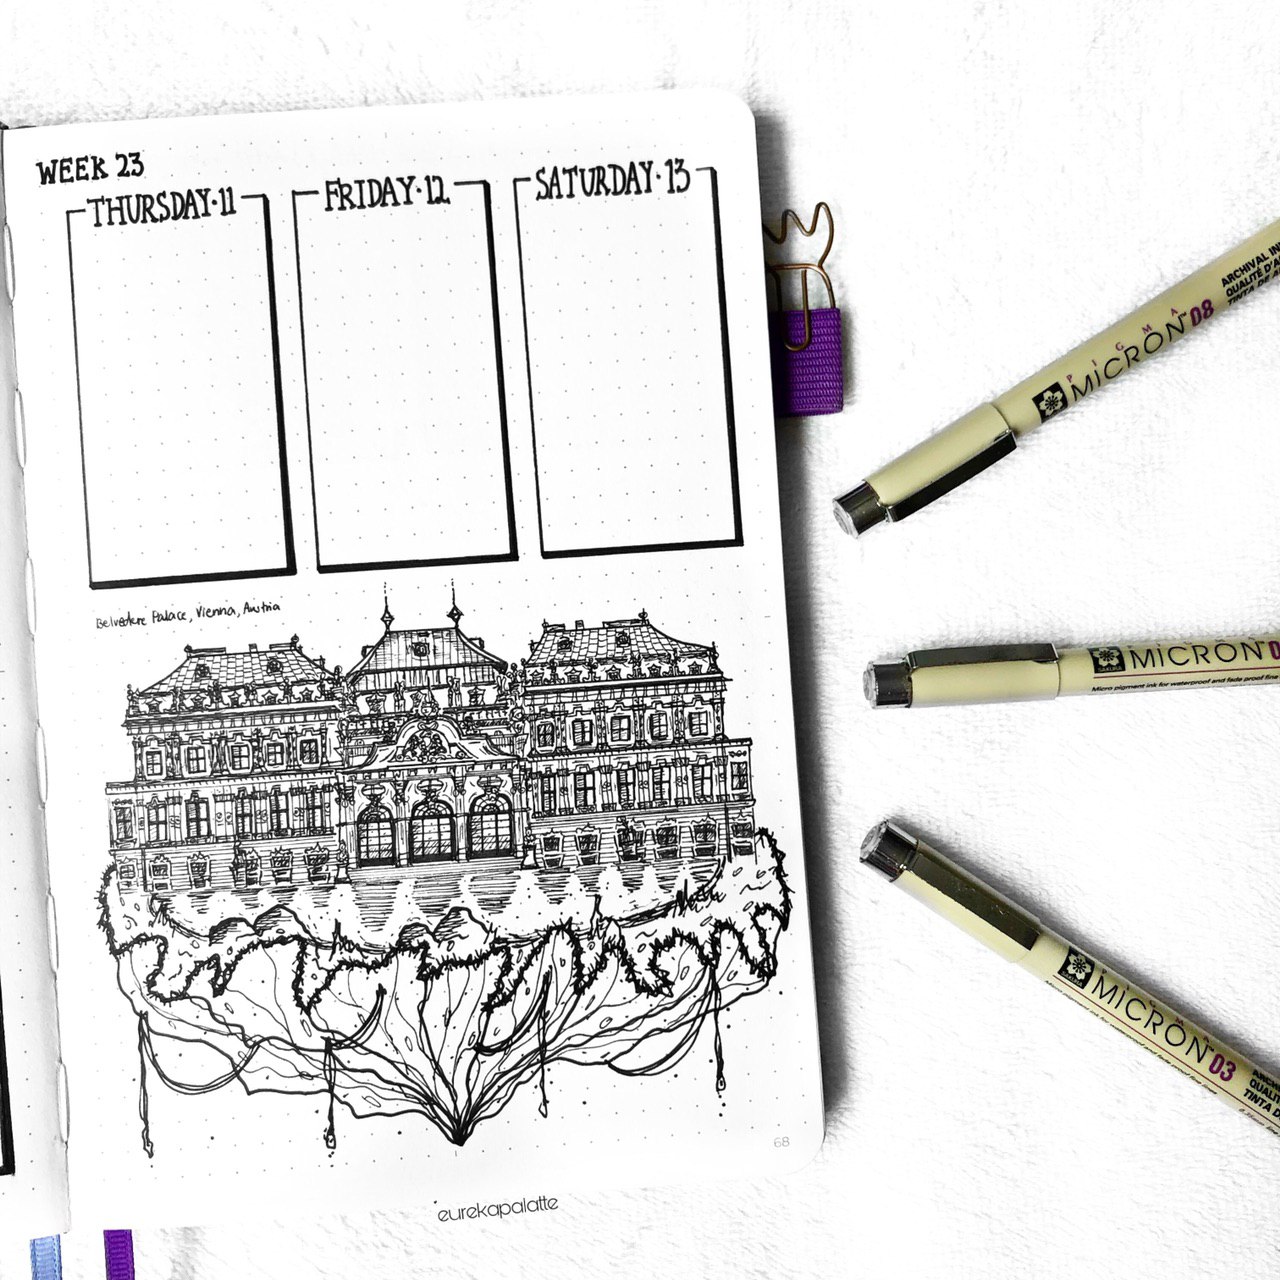 WEEK 23
THURSDAY·11
FRIDAY·12
SATURDAY·13
Belvedere Palace, Vienna, Austria
68
eurekapalatte
PIGMA
MICRON™ 08
ARCHIVAL IN
QUALITÉ D'A
TINTA DE A
MICRON™ 0
Micro pigment ink for waterproof and fade proof fine
SAKURA
MICRON™ 03
ARCH
QUALIT
TINTA D